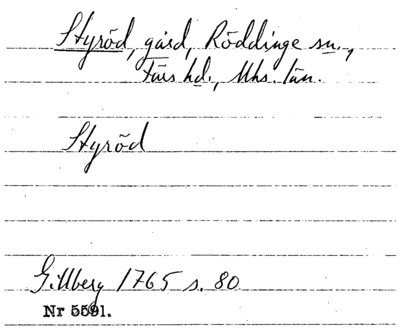 Styröd, gård, Röddinge sn.,
Färs hd., Mhs. län.
Styröd
Gillberg 1765 s. 80
Nr 5591.